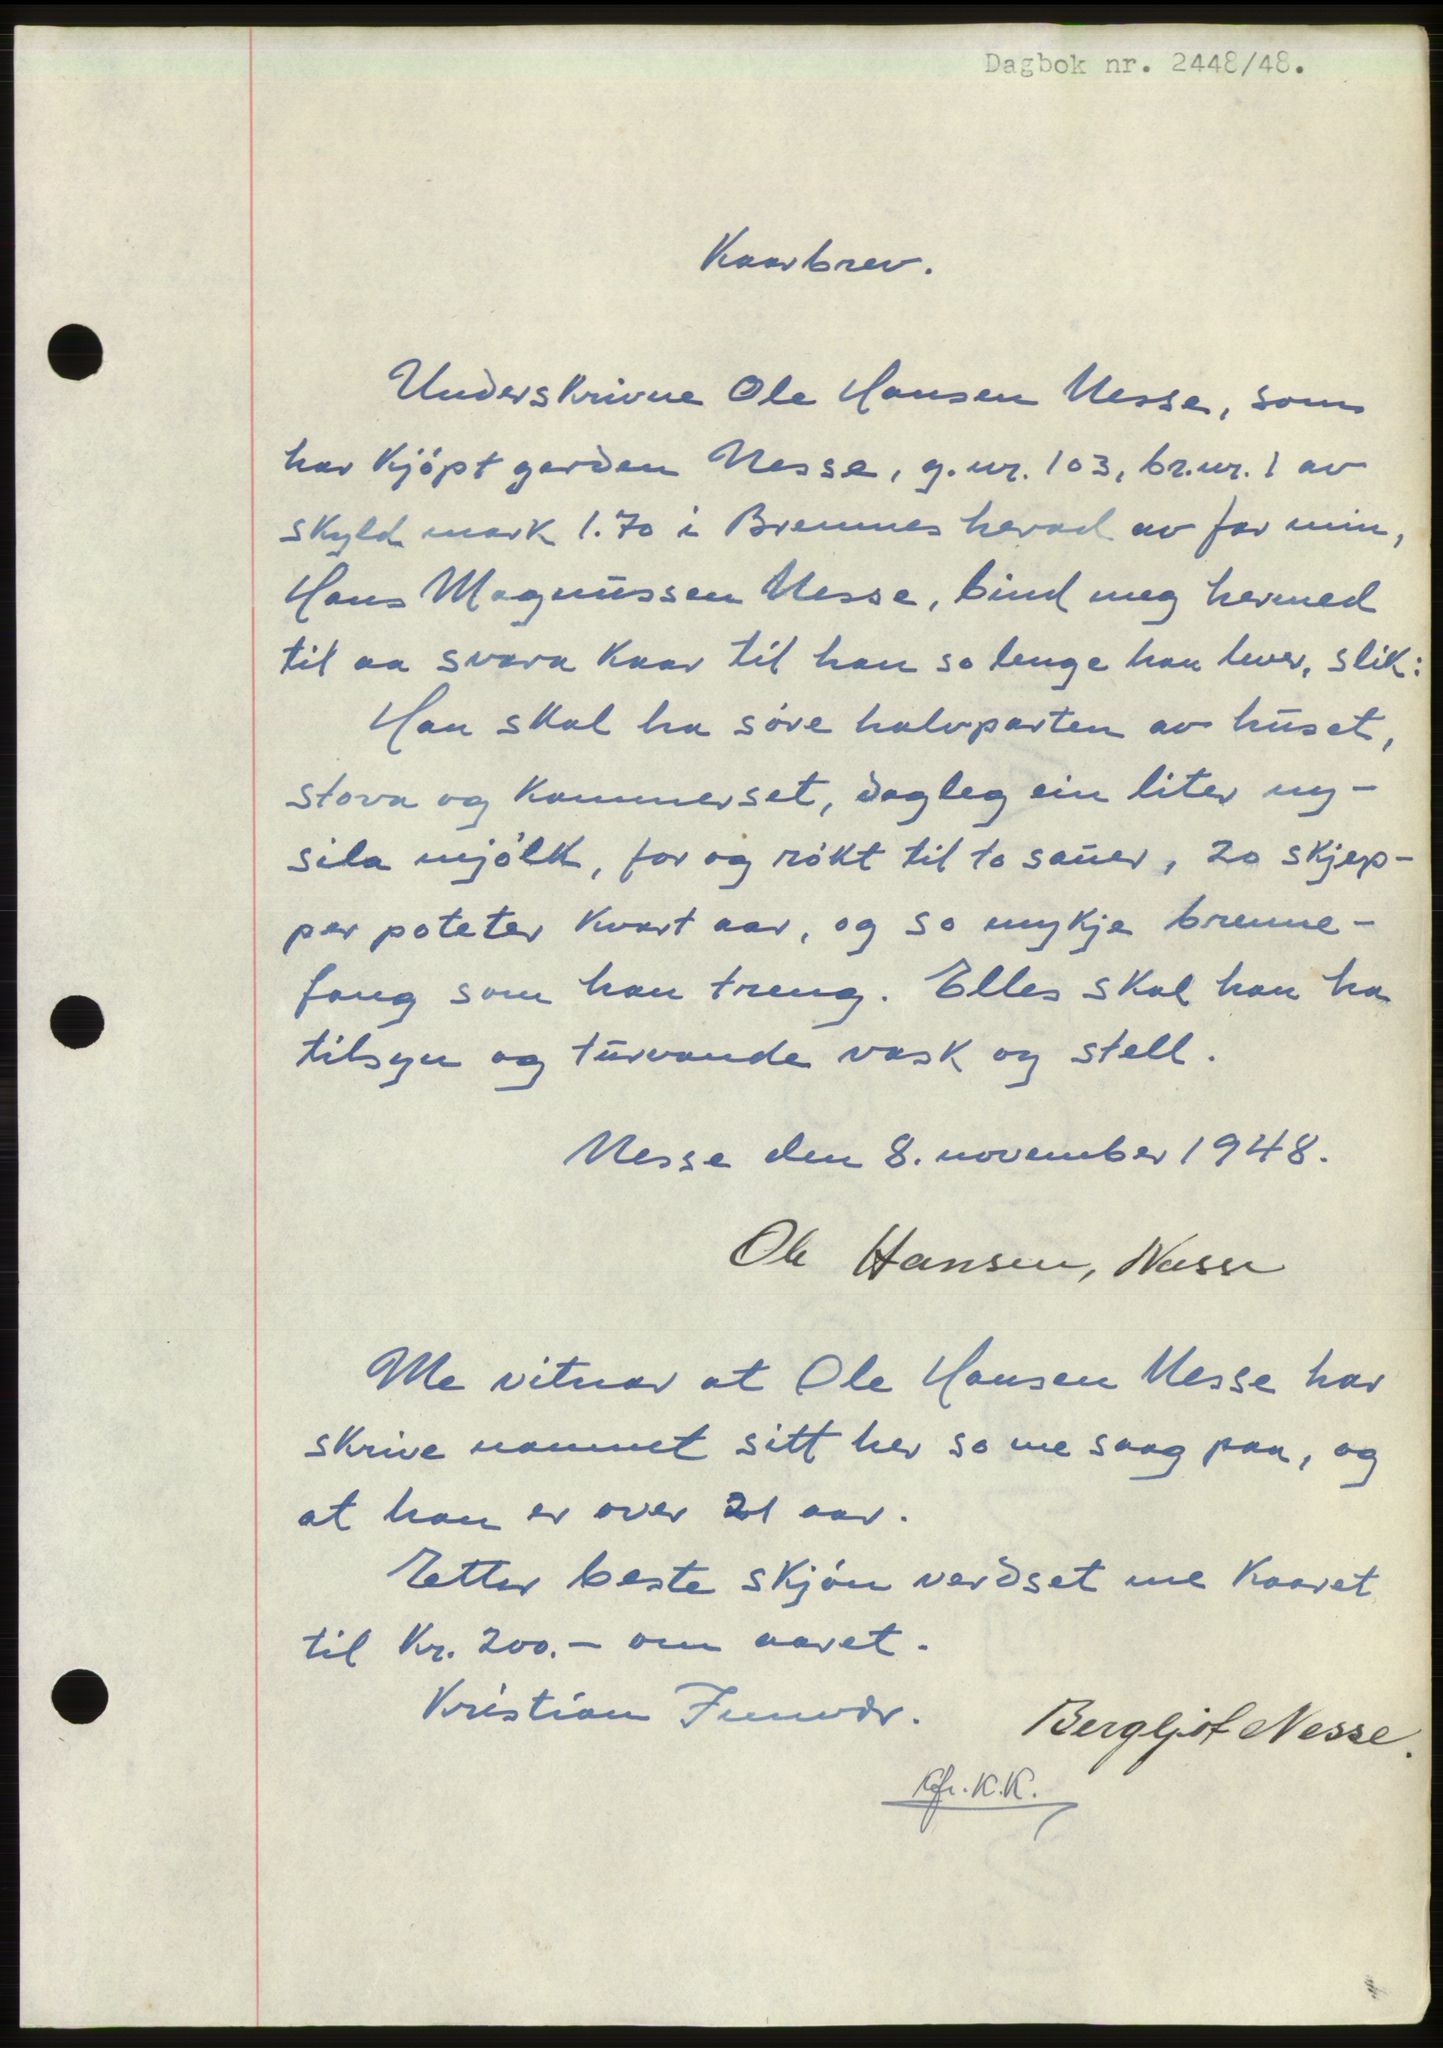 Dagbok nr. 2448/48.
Kaarbrev.
Underskrivne Ole Hansen Nesse, som
har kjöpt garden Nesse, g.nr. 103, br.nr. 1 av
skyld mark 1.70 i Bremnes herad av far min,
Hans Magnussen Nesse, bind meg hermed
til aa svara kaar til han so lenge han lever, slik:
Han skal ha söre halvparten av huset,
stova og kammerset, dagleg ein liter ny-
sila mjölk, for og rökt til to sauer, 20 skjep-
per poteter kvart aar, og so mykje brenne-
fang som han treng. Elles skal han ha
tilsyn og turvande vask og stell.
Nesse den 8. november 1948.
Ole Hansen, Nesse
Me vitnar at Ole Hansen Nesse har
skrive namnet sitt her so me saag paa, og
at han er over 21 aar.
Etter beste skjön verdset me kaaret
til kr. 200.- om aaret.
Kristian
Bergljot Nesse.
K.K.